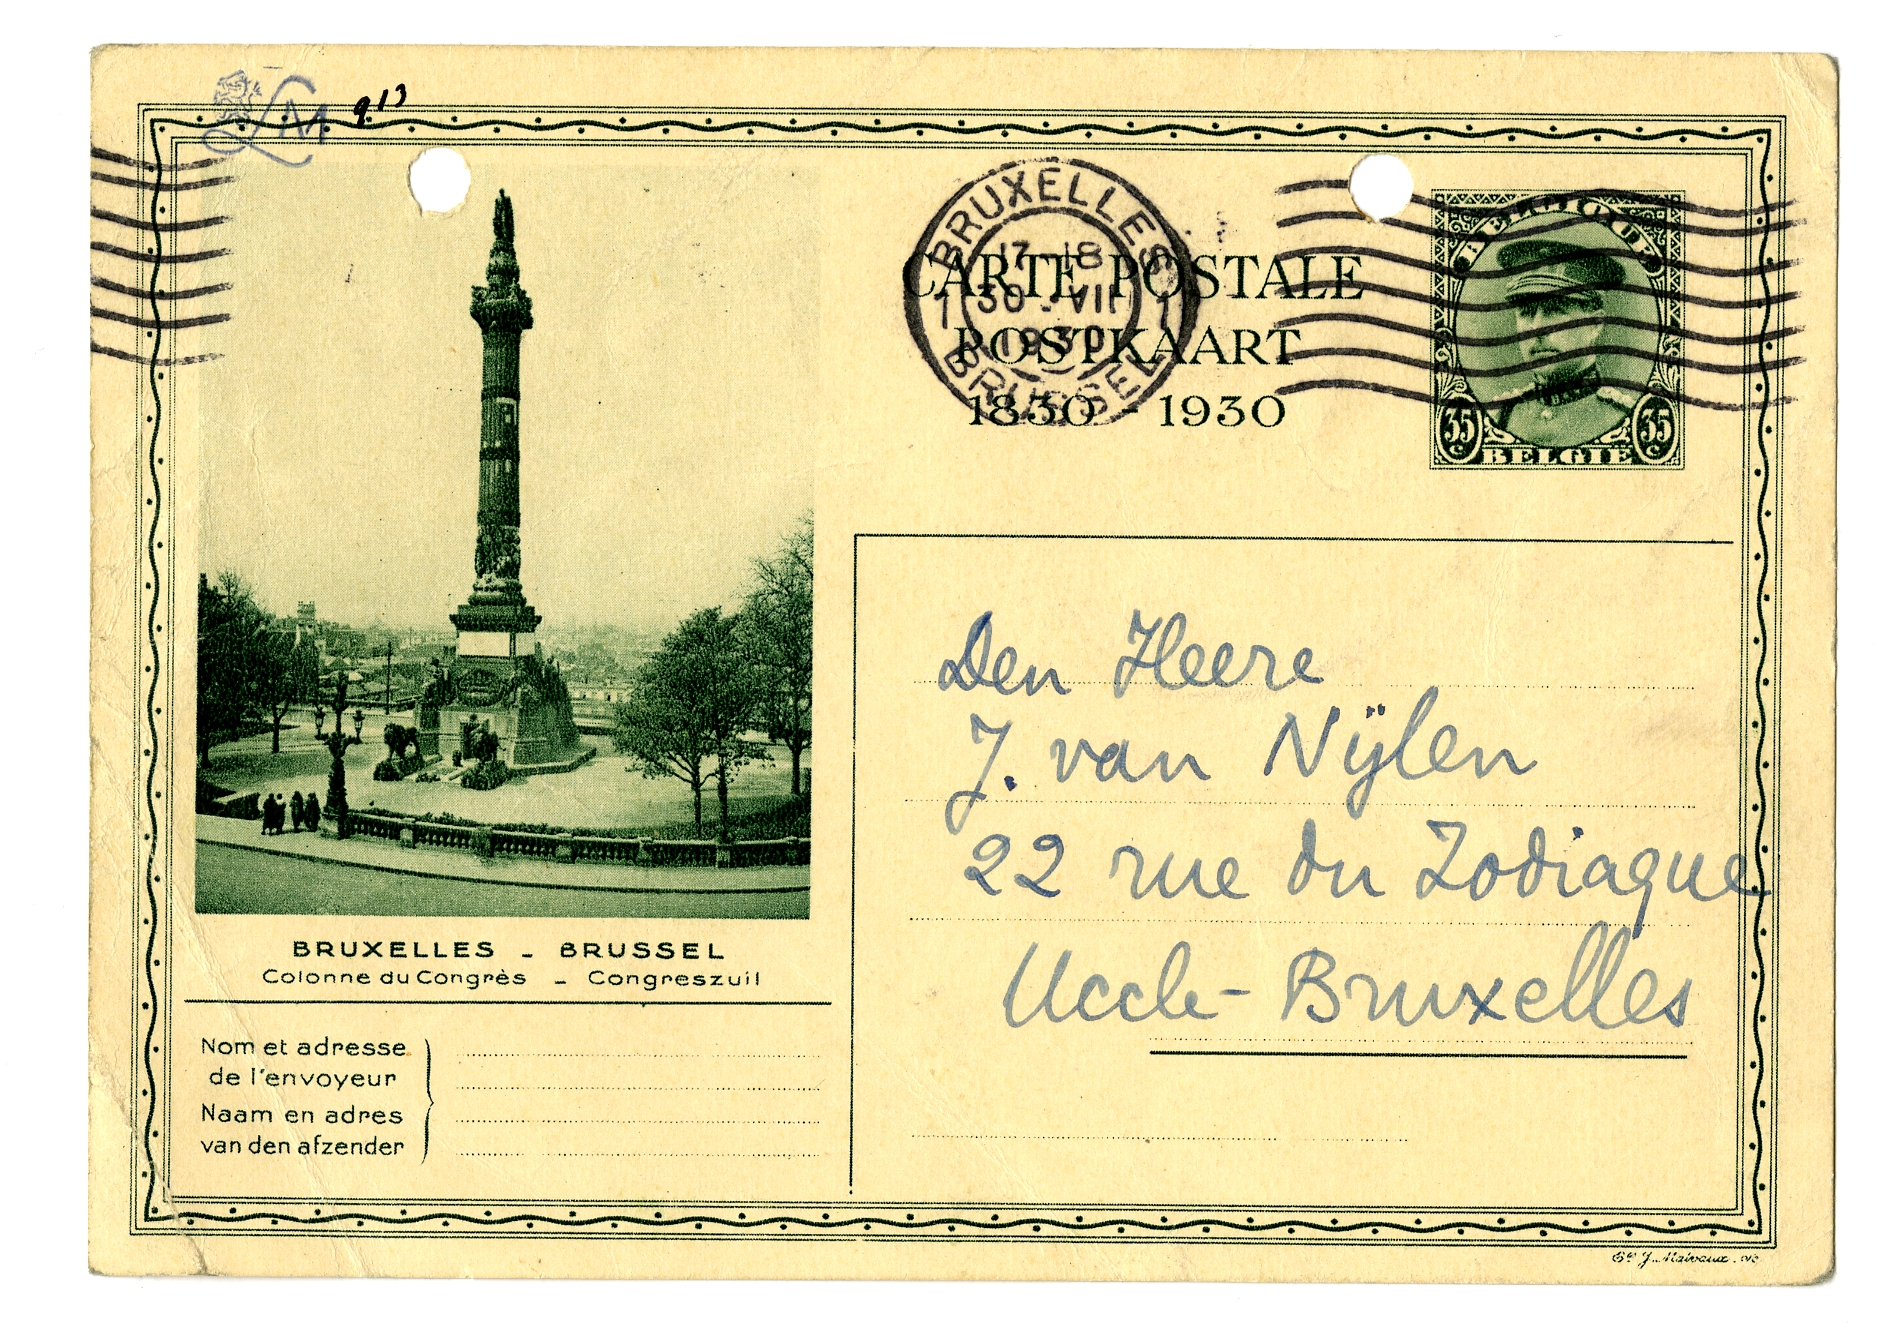 LM
913
BRUXELLES
17-18
1 30-VII 1
1930
BRUSSEL
CARTE POSTALE
POSTKAART
1830 - 1930
BELGIQUE
35 c
35 c
BELGIË
BRUXELLES - BRUSSEL
Colonne du Congrès - Congreszuil
Nom et adresse
de l'envoyeur
Naam en adres
van den afzender
Den Heere
J. van Nÿlen
22 rue du Zodiaque
Uccle - Bruxelles